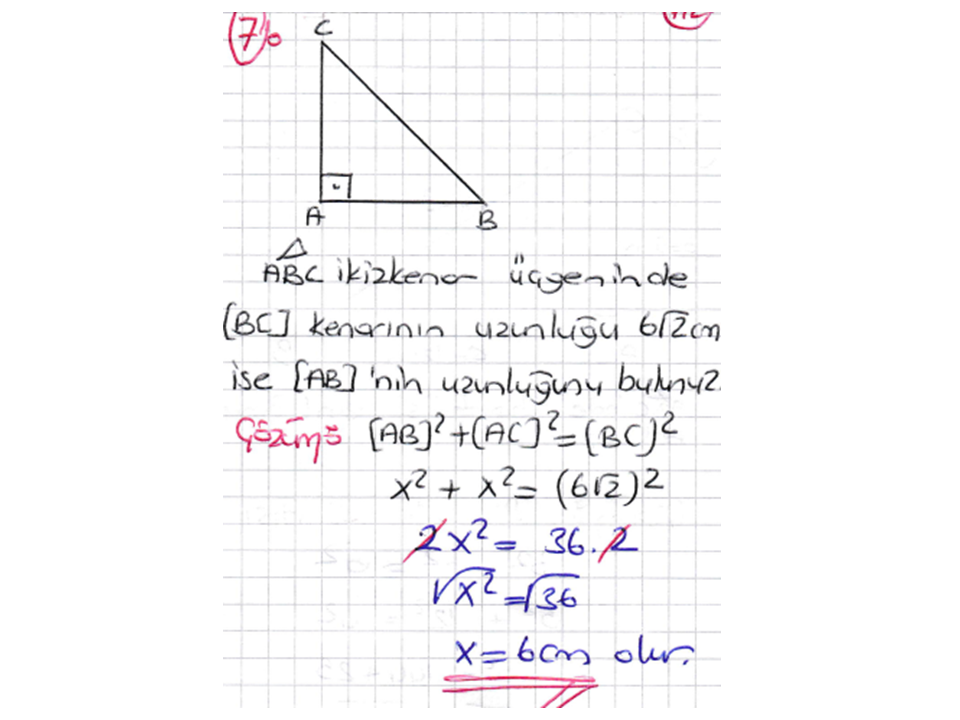 7)
C
A
B
ABC ikizkenar üçgeninde
[BC] kenarının uzunluğu 6√2cm
ise [AB]'nin uzunluğunu bulunuz.
Çözüm: [AB]²+[AC]²=[BC]²
x² + x² = (6√2)²
2x² = 36.2
√x² = √36
x = 6cm olur.